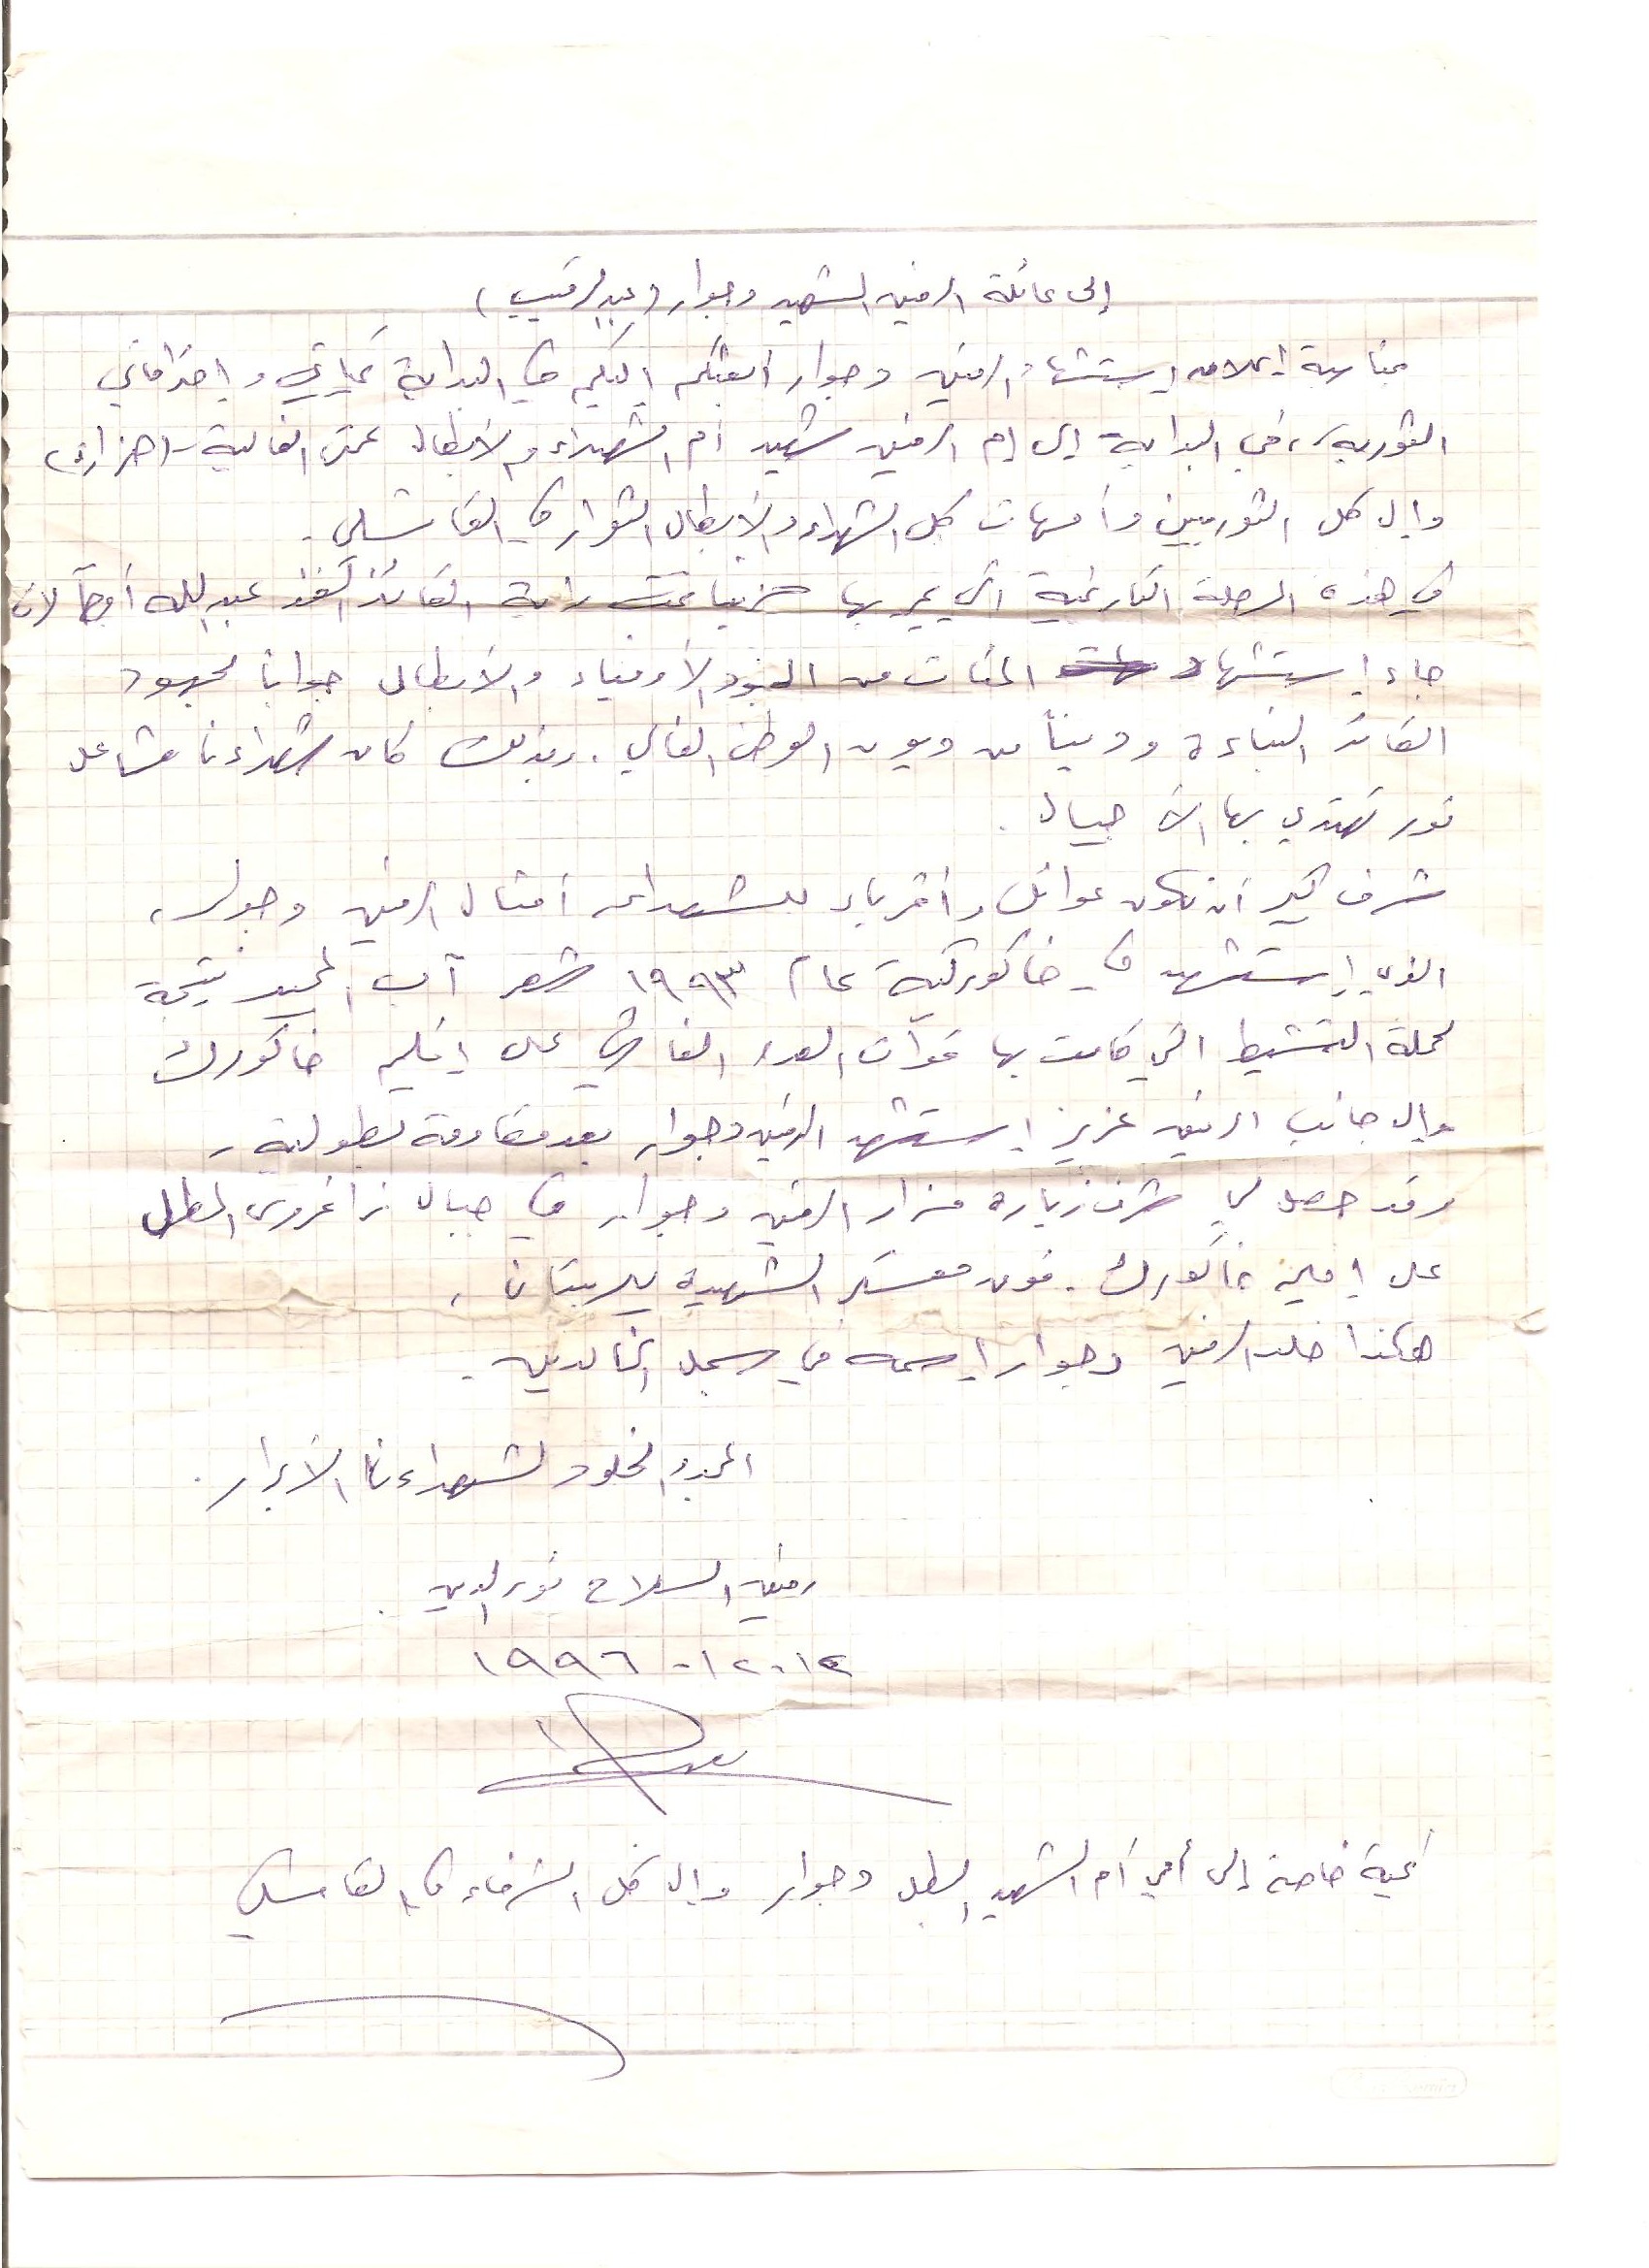 إلى عائلة الرفيق الشهيد دجوار (عبد الرقيب)
بمناسبة إعلان إستشهاد الرفيق دجوار أبعثكم إليكم في البداية تحياتي و إحتراماتي
الثورية، في البداية إلى إم الرفيق شهيد أم الشهداء والأبطال عمتي الغالية
وإلى كل الثوريين وأمهات كل الشهداء والأبطال الثوار في القامشلي.
في هذه المرحلة التاريخية التي يمر بها حزبنا تحت راية القائد الفذ عبد الله أوجآلان
جاء إستشهاد المئات من الجنود الأوفياء والأبطال جواباً لجهود
القائد البناءة وديناً من ديون الوطن الغالي. وبذلك كان شهداءنا مشاعل
نور تهتدي بها الأجيال.
شرف كبير أن نكون عوائل وأقرباء للشهداء أمثال الرفيق دجوار،
الذي إستشهد في خاكوركية عام ١٩٩٣ شهر آب المجيد نتيجة
لحملة التمشيط التي قامت بها قوّات العدو الفاشي على إقليم خاكورك
وإلى جانب الرفيق عزيز إستشهد الرفيق دجوار بعد مقاومة بطولية
وقد حصل لي شرف زيارة مزار الرفيق دجوار في جبال زاغروس المطل
على إقليم خاكورك. فوق معسكر الشهيدة بيريتان.
هكذا خلد الرفيق دجوار إسمه في سجل الخالدين.
المجد والخلود لشهداءنا الأبرار.
رفيق السلاح نور الدين.
١٤-١٢-١٩٩٦
تحية خاصة إلى أمي أم الشهيد البطل دجوار وإلى كل الشرفاء في القامشلي